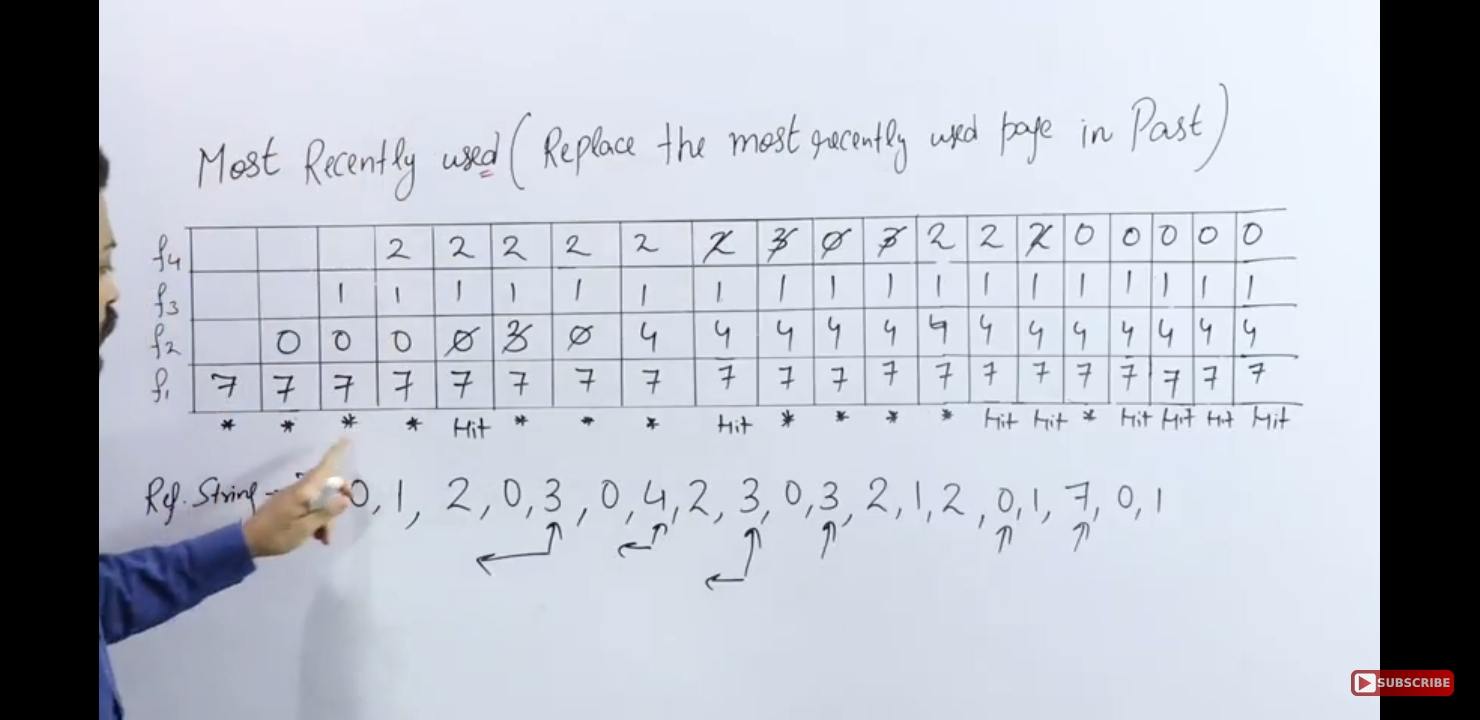 Most Recently used (Replace the most recently used page in Past)
f4 2 2 2 2 2 2 3 0 3 2 2 2 0 0 0 0 0
f3 1 1 1 1 1 1 1 1 1 1 1 1 1 1 1 1 1 1
f2 0 0 0 0 3 0 4 4 4 4 4 4 4 4 4 4 4 4 4
f1 7 7 7 7 7 7 7 7 7 7 7 7 7 7 7 7 7 7 7 7
* * * * Hit * * * Hit * * * * Hit Hit * Hit Hit Hit Hit
Ref. String - 0, 1, 2, 0, 3, 0, 4, 2, 3, 0, 3, 2, 1, 2, 0, 1, 7, 0, 1
SUBSCRIBE